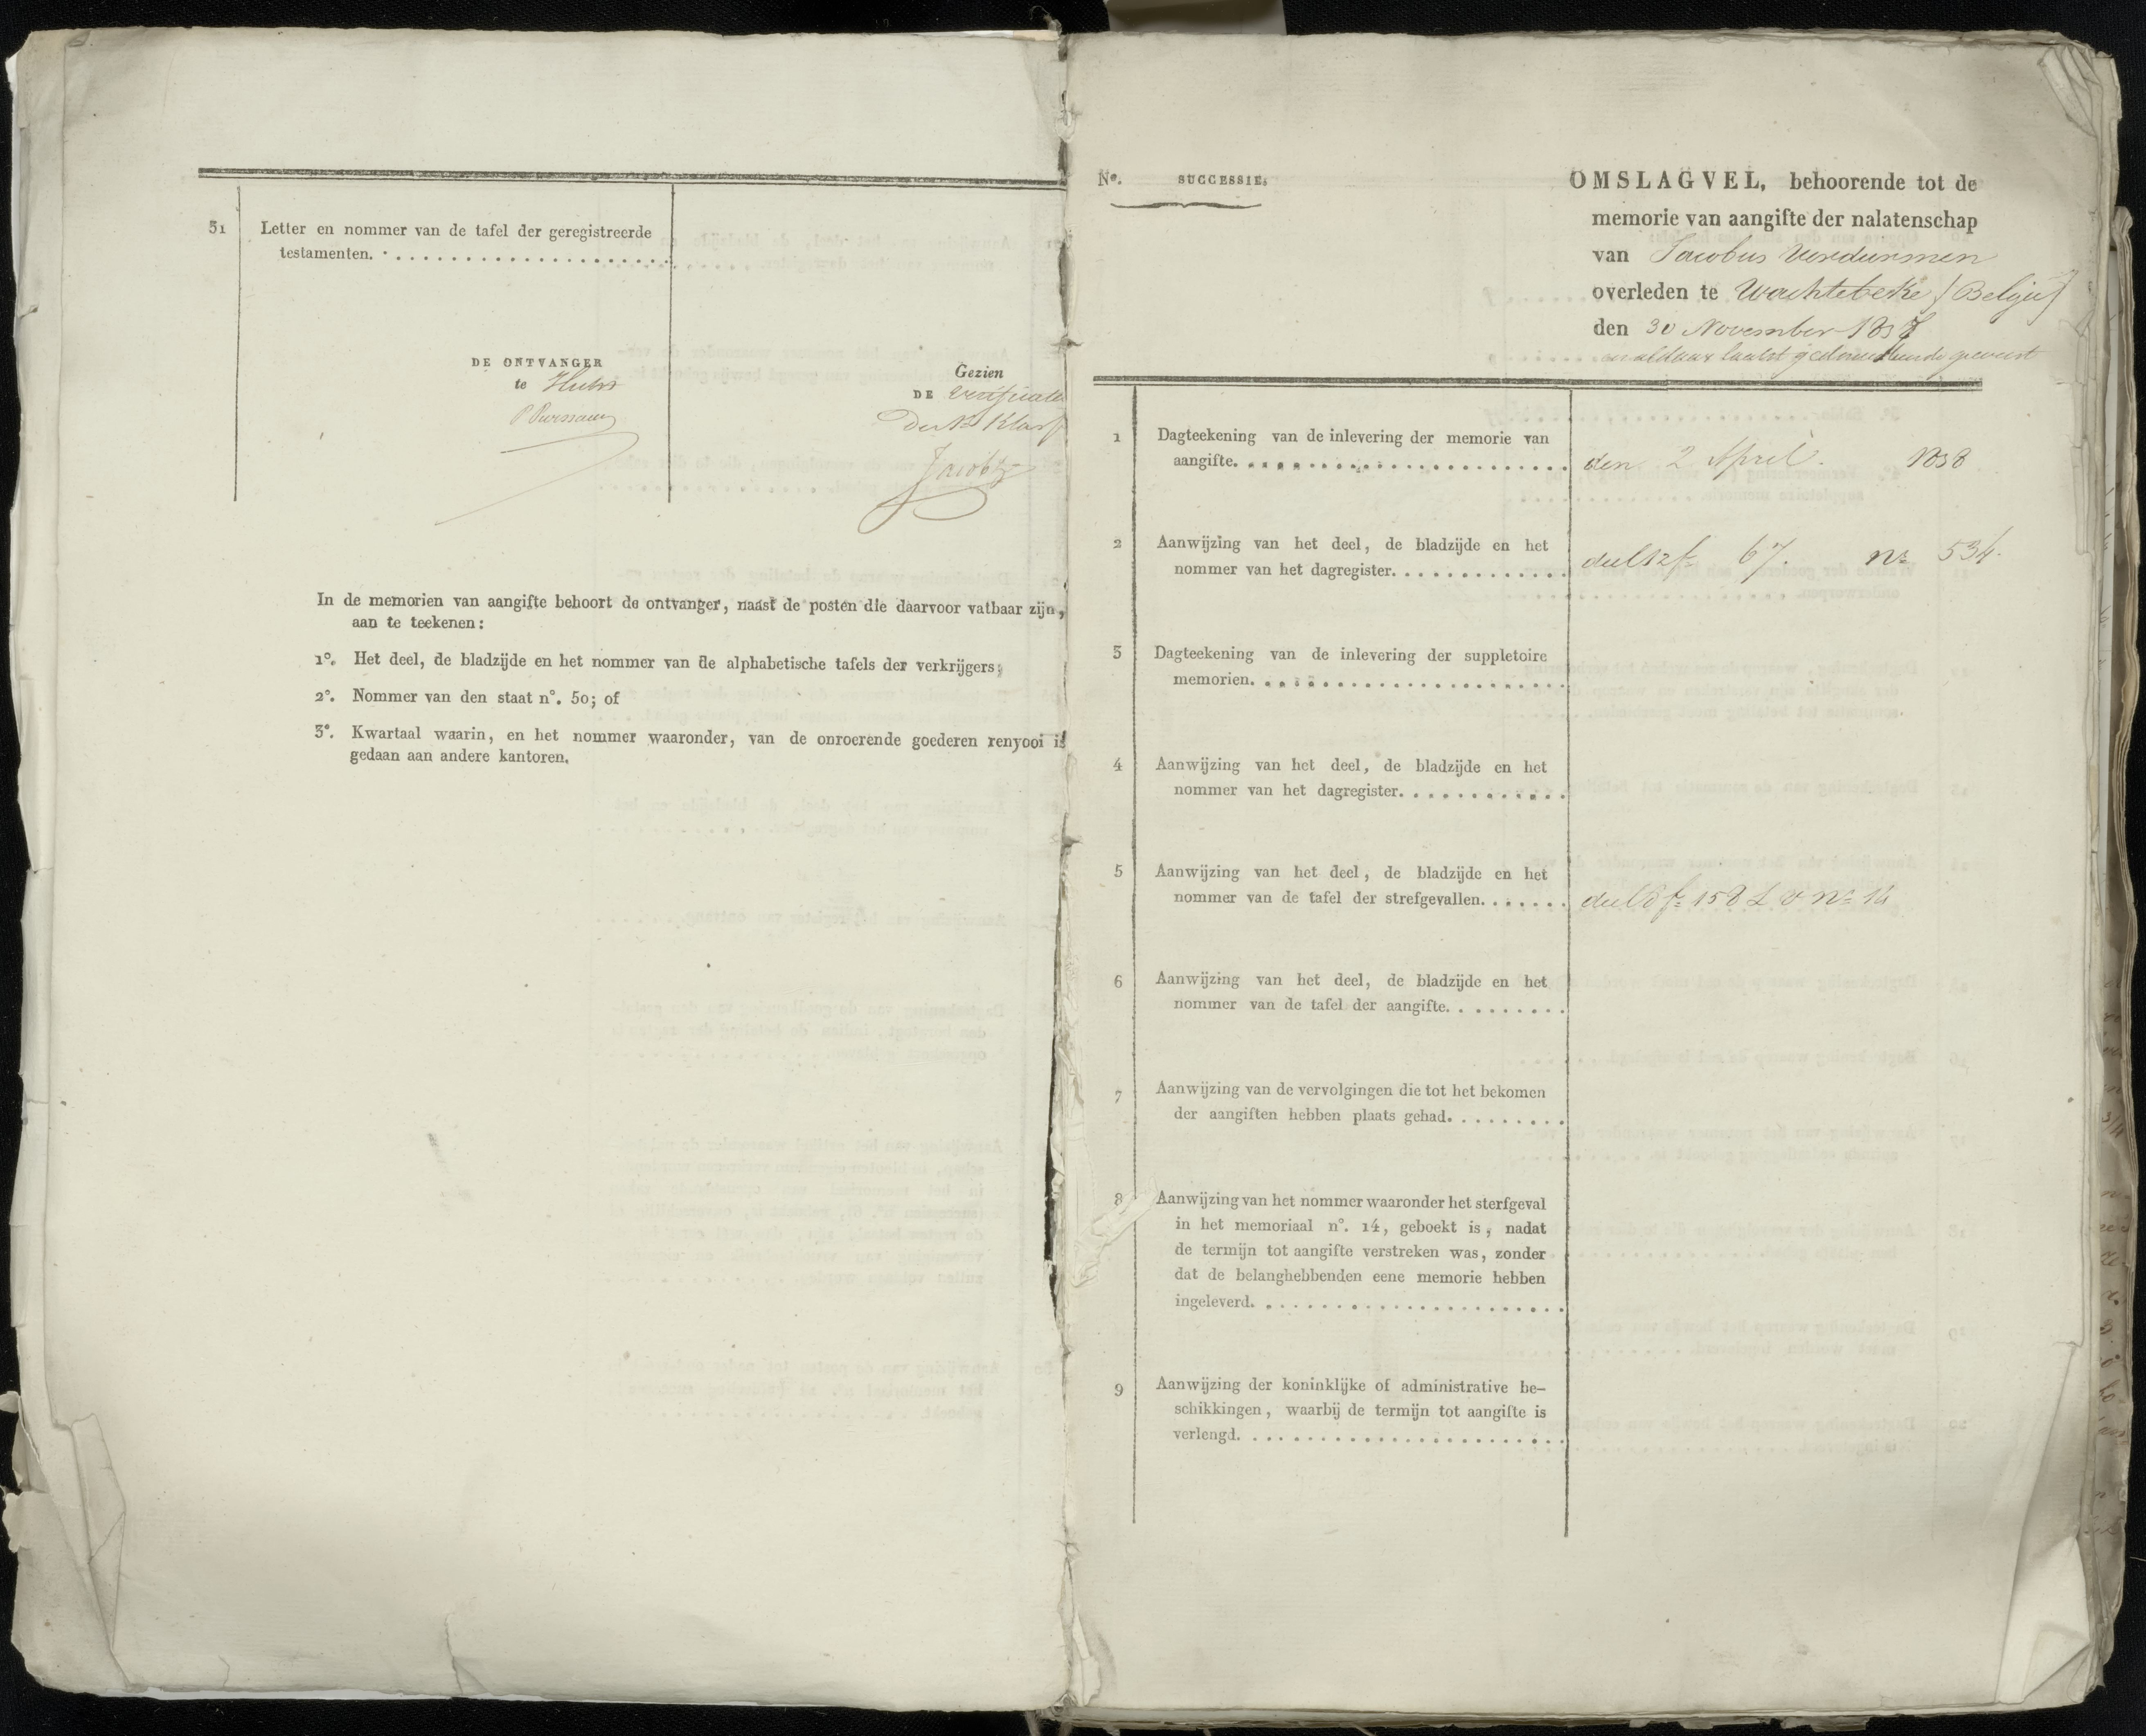 31 Letter en nommer van de tafel der geregistreerde
testamenten.
DE ONTVANGER
te Hulst
Gezien
DE Verificateur
Jacobs
In de memorien van aangifte behoort de ontvanger, naast de posten die daarvoor vatbaar zijn,
aan te teekenen:
1°. Het deel, de bladzijde en het nommer van de alphabetische tafels der verkrijgers;
2°. Nommer van den staat n°. 50; of
3°. Kwartaal waarin, en het nommer waaronder, van de onroerende goederen renvooi is
gedaan aan andere kantoren.
N°. SUCCESSIE.
OMSLAGVEL, behoorende tot de
memorie van aangifte der nalatenschap
van Jacobus Verdurmen
overleden te Wachtebeke (Belgie)
den 30 November 1837
en aldaar laatst gedomicilieerd geweest
1 Dagteekening van de inlevering der memorie van
aangifte. den 2 April 1838
2 Aanwijzing van het deel, de bladzijde en het
nommer van het dagregister. deel 12 f° 67. n° 534.
3 Dagteekening van de inlevering der suppletoire
memorien.
4 Aanwijzing van het deel, de bladzijde en het
nommer van het dagregister.
5 Aanwijzing van het deel, de bladzijde en het
nommer van de tafel der strefgevallen. deel 6 f° 158 L v n° 14
6 Aanwijzing van het deel, de bladzijde en het
nommer van de tafel der aangifte.
7 Aanwijzing van de vervolgingen die tot het bekomen
der aangiften hebben plaats gehad.
8 Aanwijzing van het nommer waaronder het sterfgeval
in het memoriaal n°. 14, geboekt is, nadat
de termijn tot aangifte verstreken was, zonder
dat de belanghebbenden eene memorie hebben
ingeleverd.
9 Aanwijzing der koninklijke of administrative be-
schikkingen, waarbij de termijn tot aangifte is
verlengd.